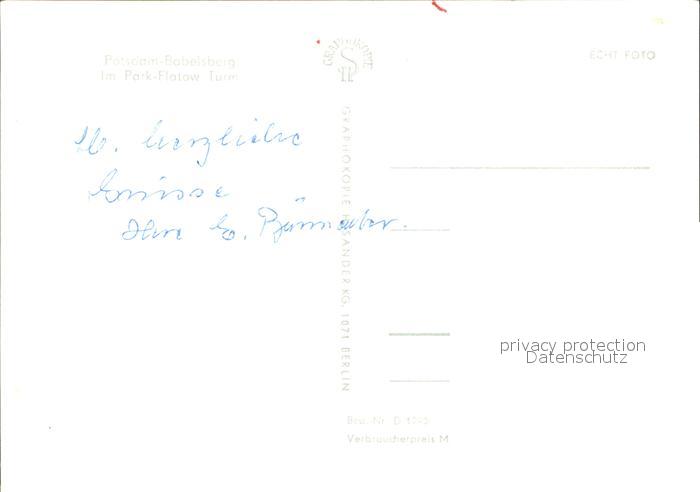 Potsdam-Babelsberg
Im Park-Flatow Turm
GRAPHOKOPIE
ECHT FOTO
herzliche
Grüsse
Ihre
GRAPHOKOPIE H. SANDER KG, 1071 BERLIN
privacy protection
Datenschutz
Best. Nr. D
Verbraucherpreis M